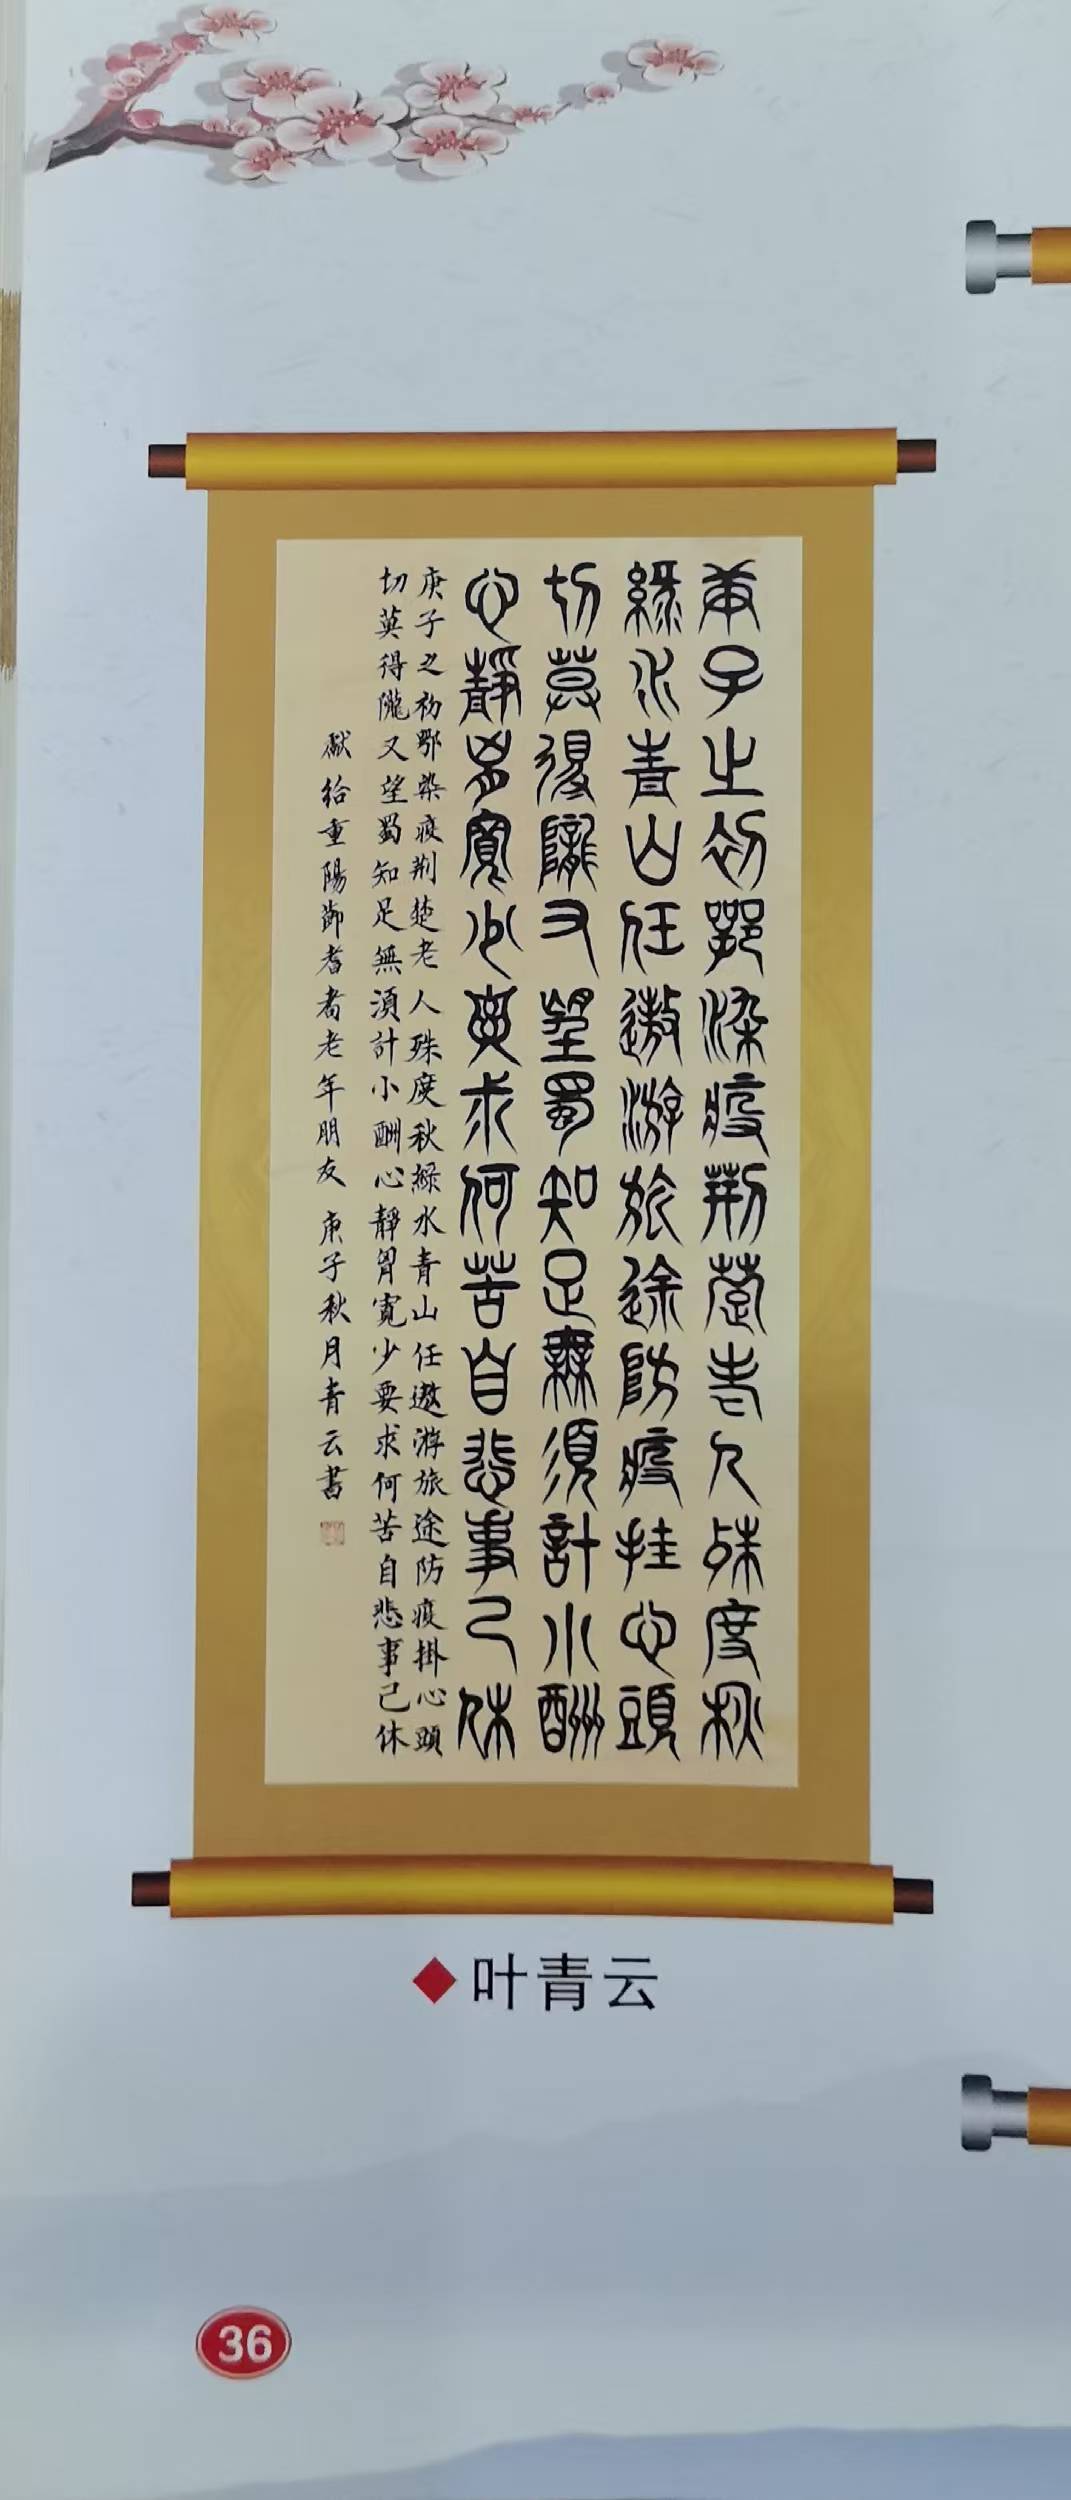 庚子之初鄂染疫荆楚老人殊度秋
綠水青山任遨游旅途防疫挂心頭
切莫得隴又望蜀知足無須計小酬
心靜胷寬少要求何苦自悲事已休
庚子之初鄂染疫荆楚老人殊度秋綠水青山任遨游旅途防疫掛心頭
切莫得隴又望蜀知足無須計小酬心靜胷寬少要求何苦自悲事已休
獻給重陽節耆耇老年朋友 庚子秋月青云書
叶青云
36